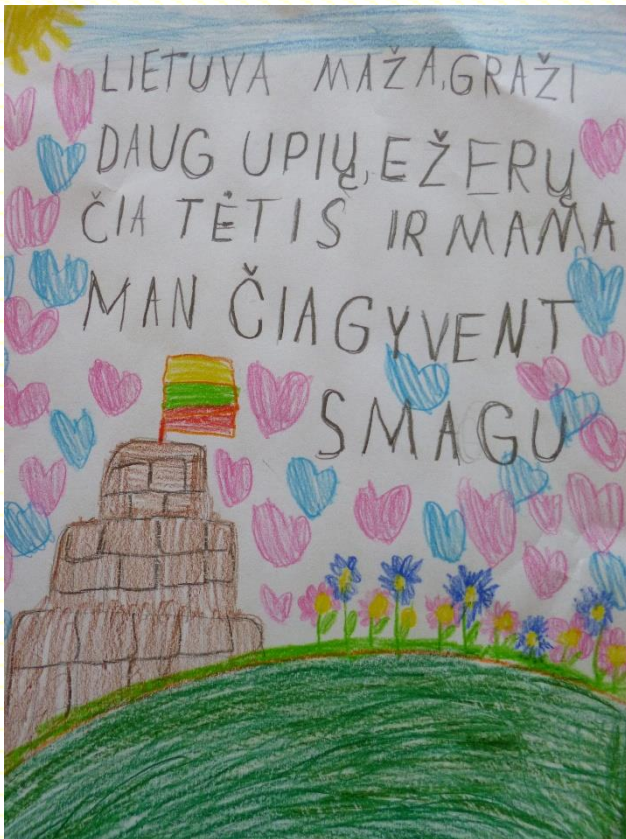 LIETUVA MAŽA, GRAŽI
DAUG UPIŲ, EŽERŲ
ČIA TĖTIS IR MAMA
MAN ČIA GYVENT
SMAGU